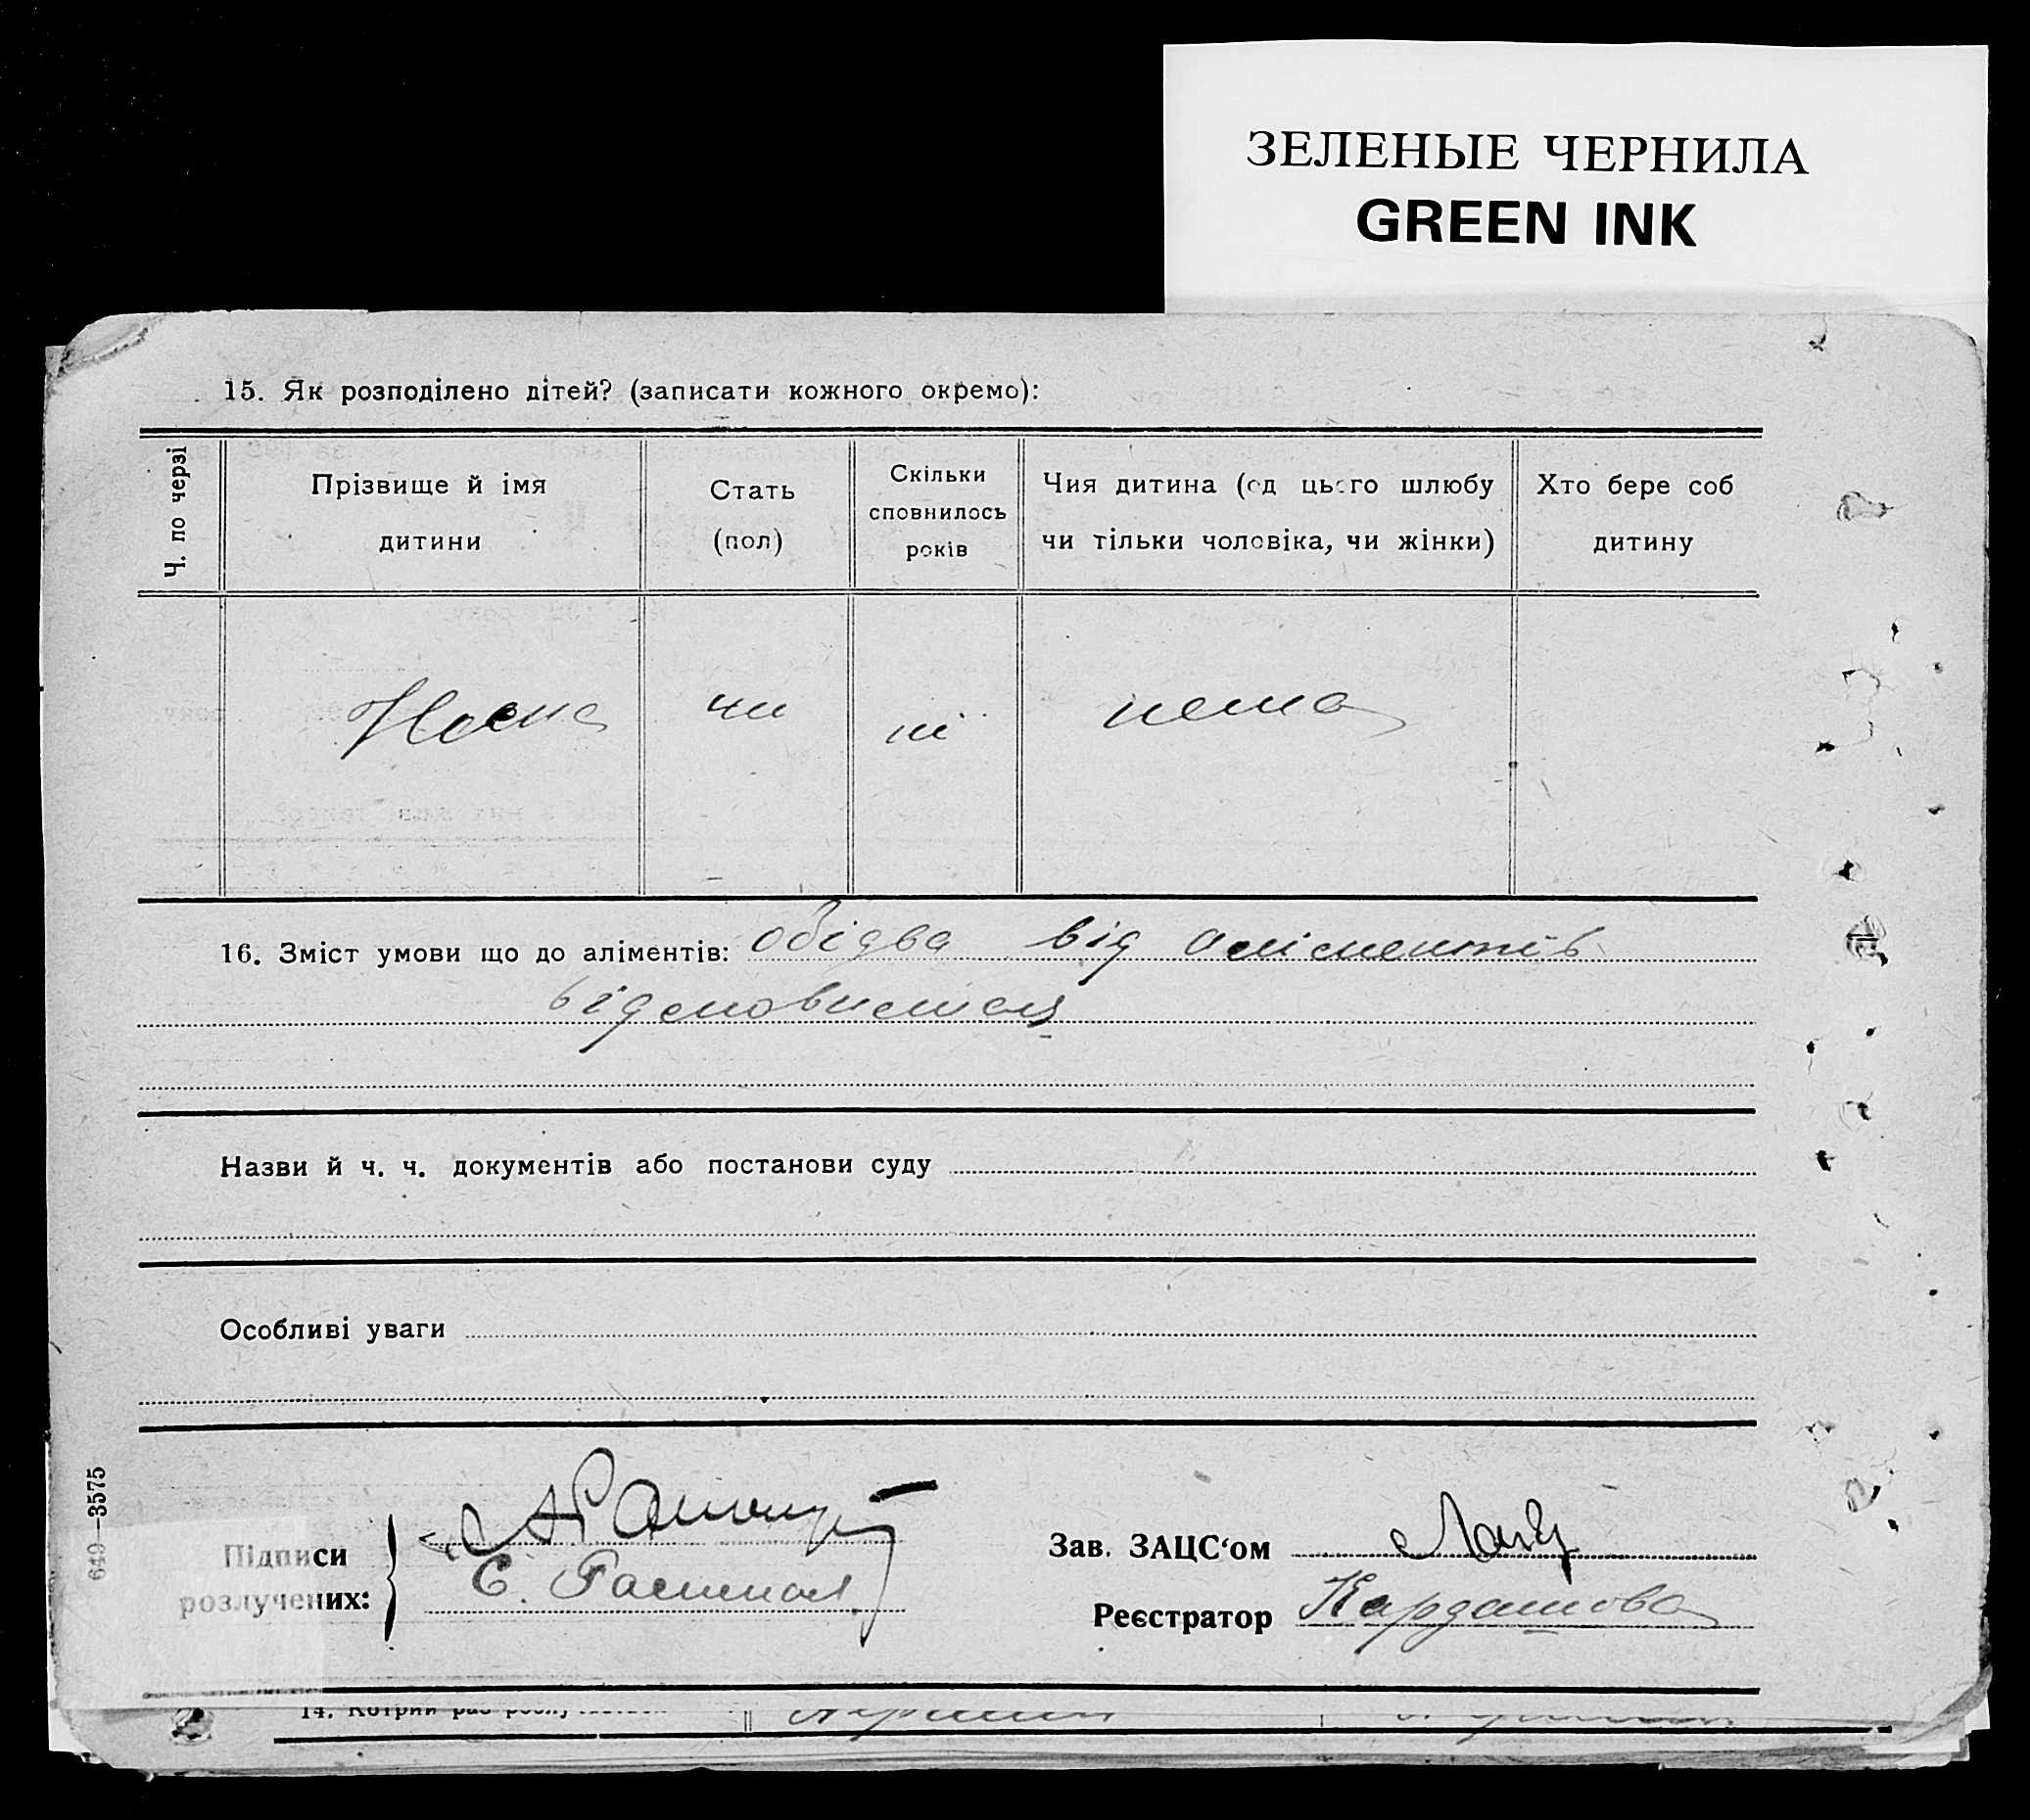 ЗЕЛЕНЫЕ ЧЕРНИЛА
GREEN INK
15. Як розподілено дітей? (записати кожного окремо):
Ч. по черзі
Прізвище й імя
дитини
Стать
(пол)
Скільки
сповнилось
років
Чия дитина (од цього шлюбу
чи тільки чоловіка, чи жінки)
Хто бере соб
дитину
нема
16. Зміст умови що до аліментів: обідва від аліментів
відмовились
Назви й ч. ч. документів або постанови суду
Особливі уваги
Підписи
розлучених:
Зав. ЗАЦС‘ом
Реєстратор Кардашова
649—3575
14. Котрий раз